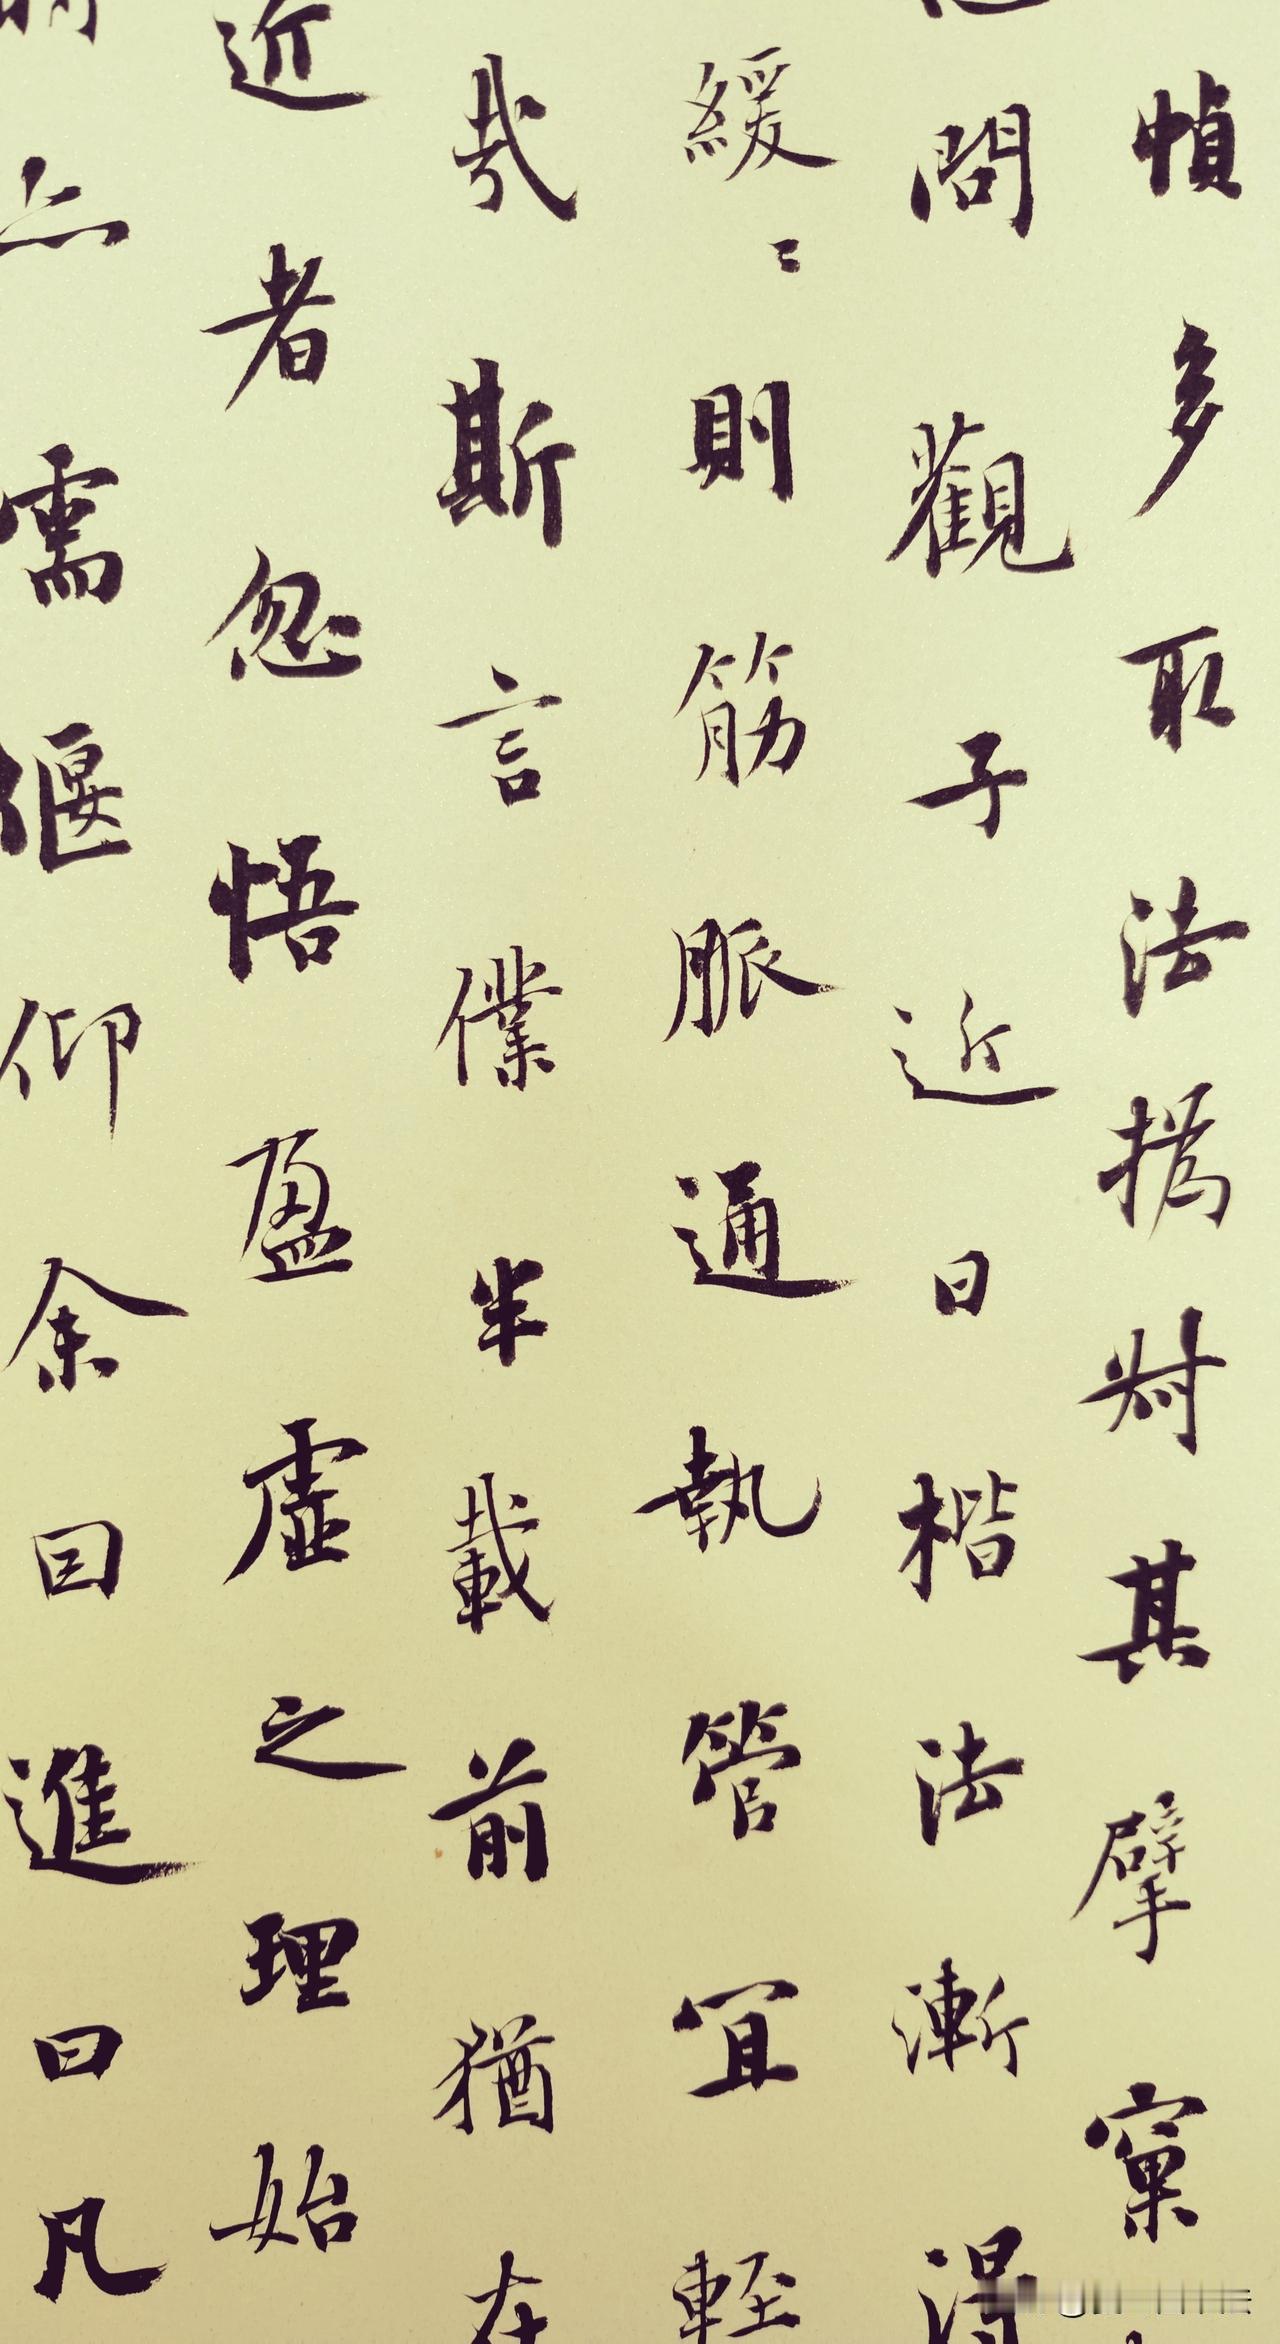 幀多取法撝叔其擘窠
問觀子近日楷法漸得
緩〻則筋脈通執管宜輕
哉斯言僕半載前猶在
近者忽悟盈虛之理始
亦需偃仰余因進曰凡